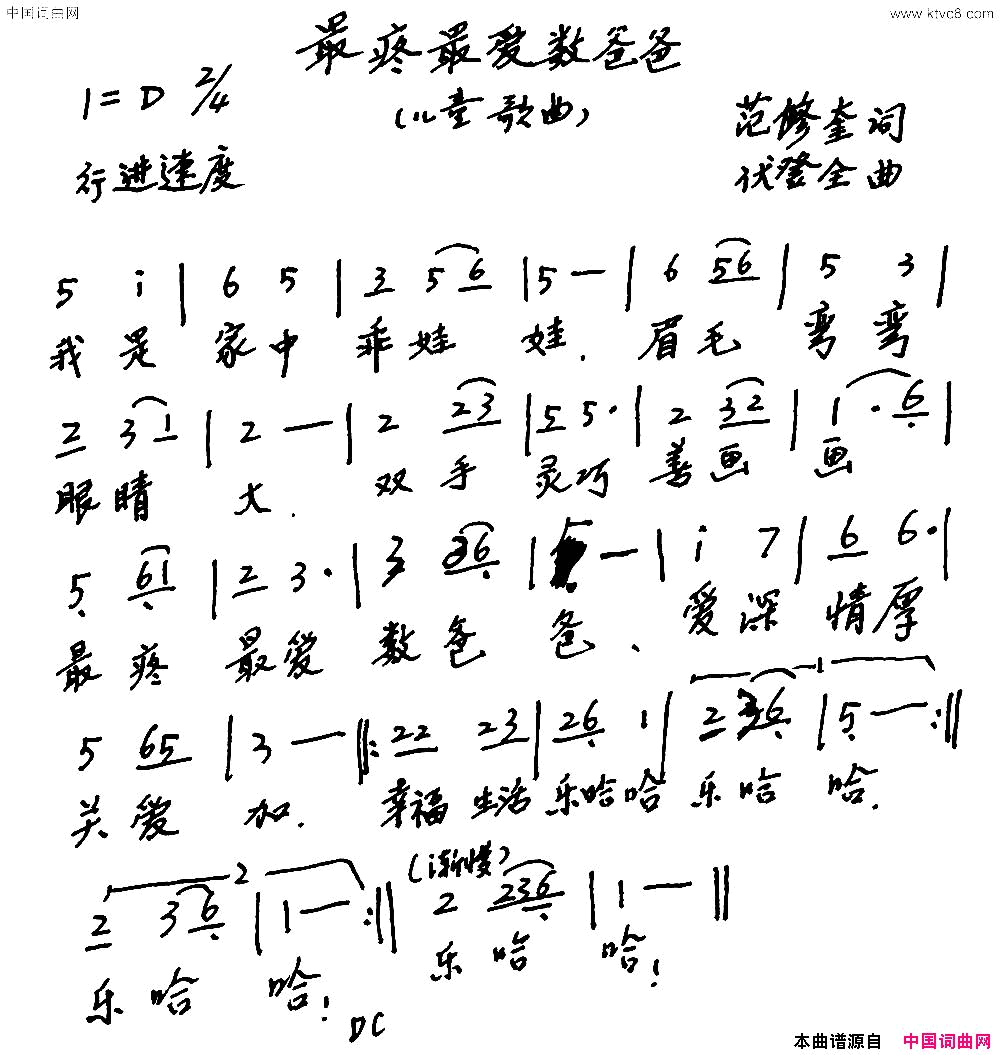 中国词曲网 www.ktvc8.com
最疼最爱数爸爸
1=D 2/4 (儿童歌曲) 范修奎词
行进速度 伏登全曲
5 i | 6 5 | 3 5 6 | 5 — | 6 56 | 5 3 |
我是 家中 乖娃 娃. 眉毛 弯弯
2 3 1 | 2 — | 2 23 | 5 5· | 2 32 | 1·6 |
眼睛 大. 双手 灵巧 善画 画
5 61 | 2 3· | 3 36 | — | i 7 | 6 6· |
最疼 最爱 数爸 爸、爱深 情厚
5 65 | 3 — ‖: 22 23 | 26 1 | 2 36 | 5 — :‖
关爱 加. 幸福 生活 乐哈哈 乐哈 哈.
2 3 6 | 1 — :‖ (渐慢) 2 236 | 1 — ‖
乐哈 哈! 乐哈 哈!
DC
本曲谱源自 中国词曲网